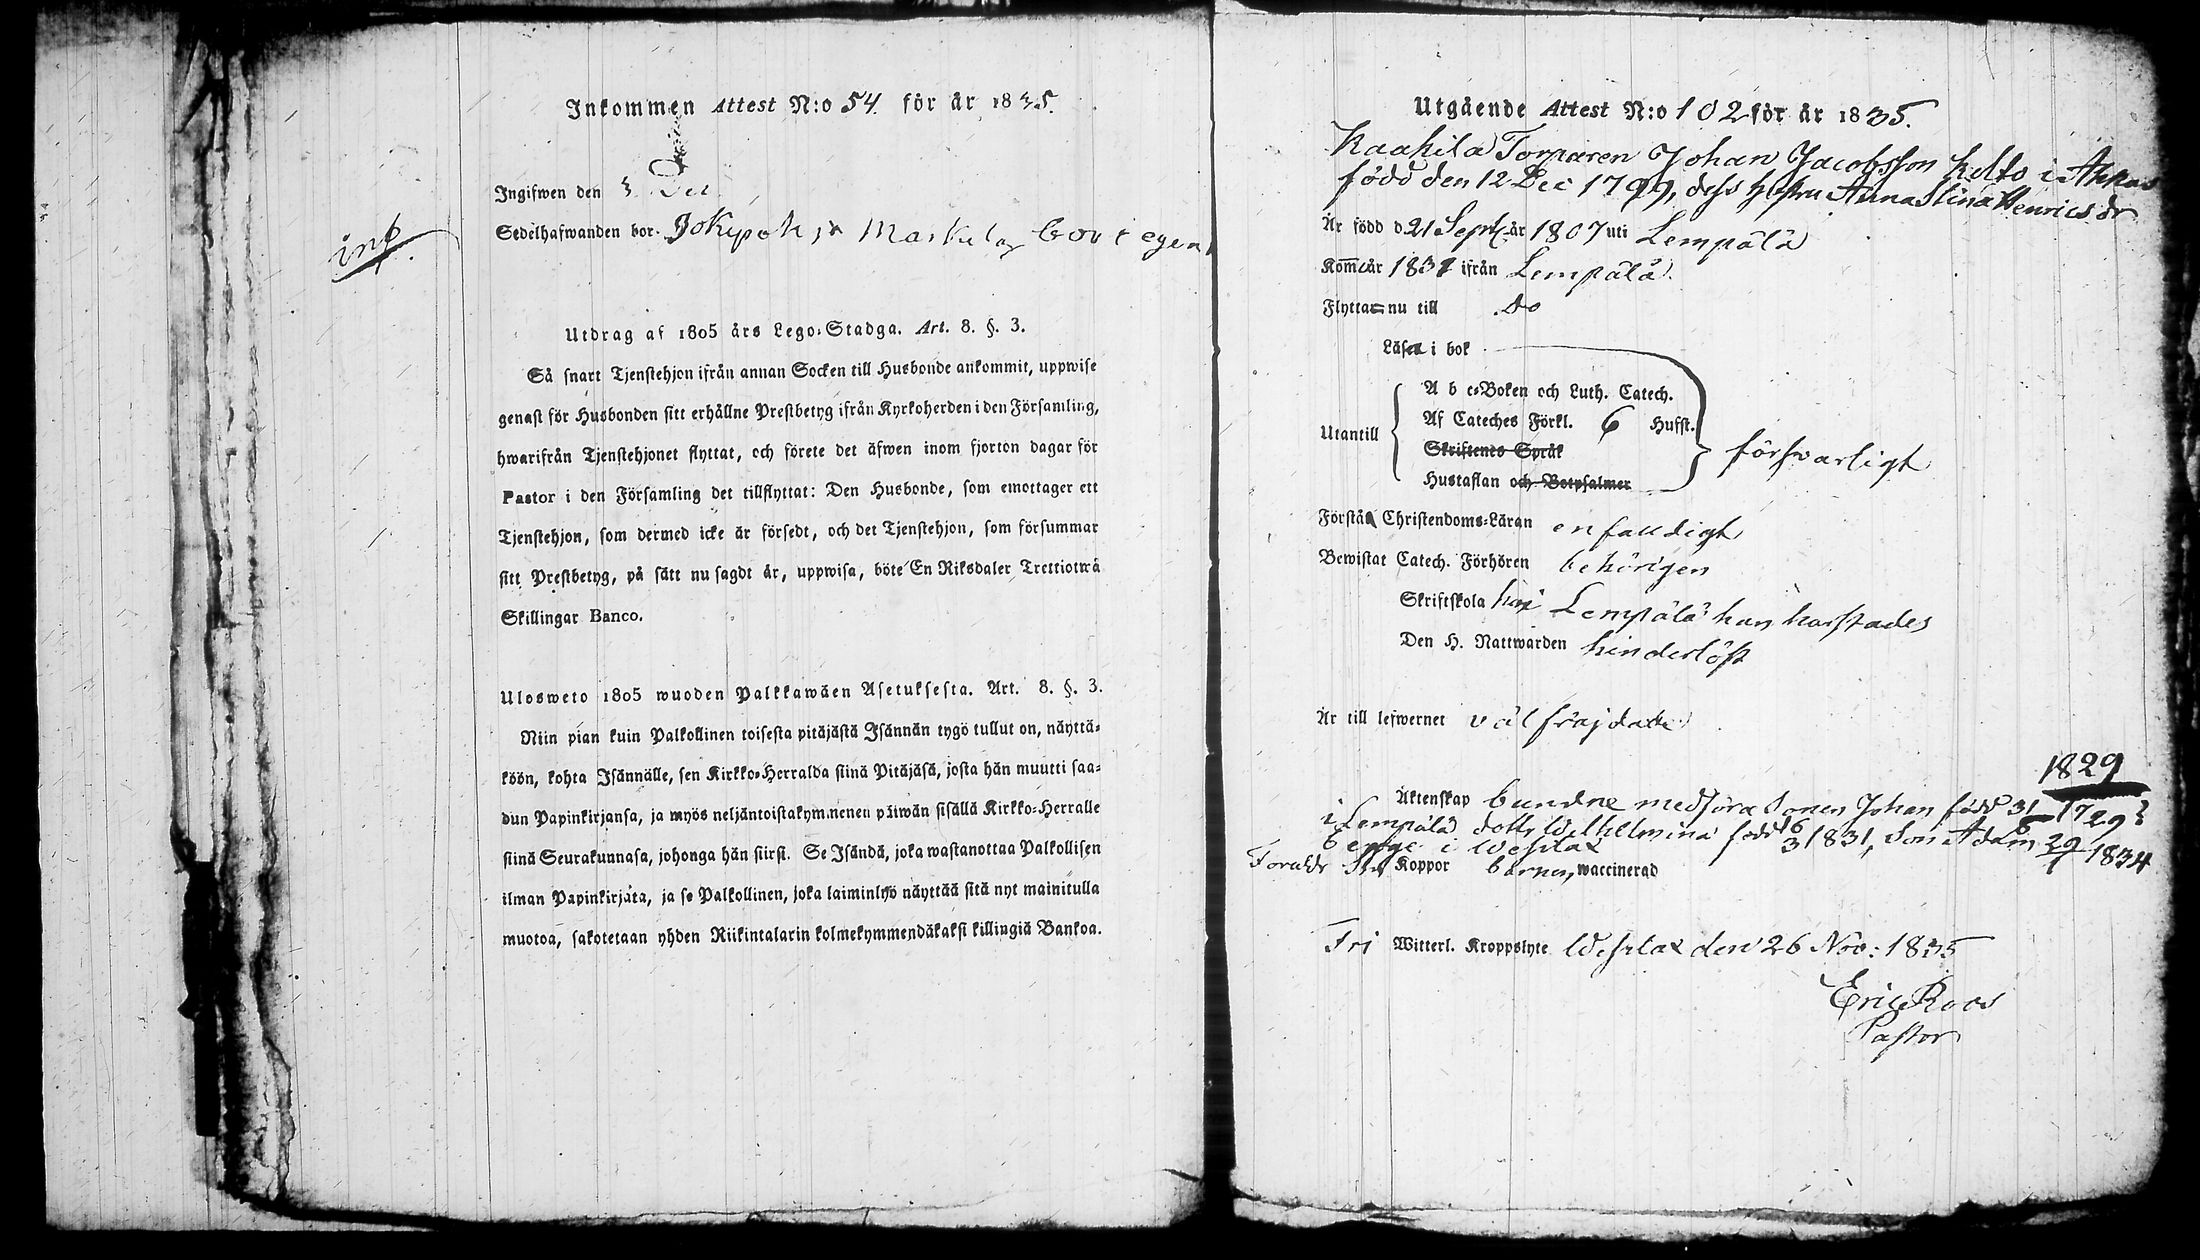 inf.
Inkommen Attest N:o 54. för år 1835.
Ingifwen den 3 Dec
Sedelhafwanden bor.
Utdrag af 1805 års Lego-Stadga. Art. 8. §. 3.
Så snart Tjenstehjon ifrån annan Socken till Husbonde ankommit, uppwise
genast för Husbonden sitt erhållne Prestbetyg ifrån Kyrkoherden i den Församling,
hwarifrån Tjenstehjonet flyttat, och förete det äfwen inom fjorton dagar för
Pastor i den Församling det tillflyttat: Den Husbonde, som emottager ett
Tjenstehjon, som dermed icke är försedt, och det Tjenstehjon, som försummar
sitt Prestbetyg, på sätt nu sagdt är, uppwisa, böte En Riksdaler Trettiotwå
Skillingar Banco.
Ulosweto 1805 wuoden Palkkawäen Asetuksesta. Art. 8. §. 3.
Niin pian kuin Palkollinen toisesta pitäjästä Isännän tygö tullut on, näyttä-
köön, kohta Isännälle, sen Kirkko-Herralda siinä Pitäjäsä, josta hän muutti saa-
dun Papinkirjansa, ja myös neljäntoistakymmenen päiwän sisällä Kirkko-Herralle
siinä Seurakunnasa, johonga hän siirsi. Se Isändä, joka wastanottaa Palkollisen
ilman Papinkirjata, ja se Palkollinen, joka laiminlyö näyttää sitä nyt mainitulla
muotoa, sakotetaan yhden Riikintalarin kolmekymmendäkaksi killingiä Bankoa.
Utgående Attest N:o 102 för år 1835.
Kaakila Torparen Johan Jacobsson
född den 12 Dec 1799, dess hustru Anna Stina Henricsdr
Är född d 21 Sept. år 1807 uti Lempälä
Kom år 1831 ifrån Lempälä
Flyttar nu till do
Läsa i bok
Utantill
A b c-Boken och Luth. Catech.
Af Cateches Förkl. 6 Hufst.
Skriftenes Språk
Hustaflan och Botpsalmer
försvarligt
Förstå Christendoms-Läran enfaldigt
Bewistat Catech. Förhören behörigen
Skriftskola Lempälä
Den H. Nattwarden hinderlöst
Är till lefwernet välfräjdade
1829
Äktenskap bundne medföra sonen Johan född 31 1729
i Lempälä dottr Wilhelmina född 16/3 1831, Son Adam 29/1 1834
i Wesilax
Koppor barnen waccinerad
Fri Witterl. Kroppslyte Wesilax den 26 Nov: 1835
Eric Roos
Pastor